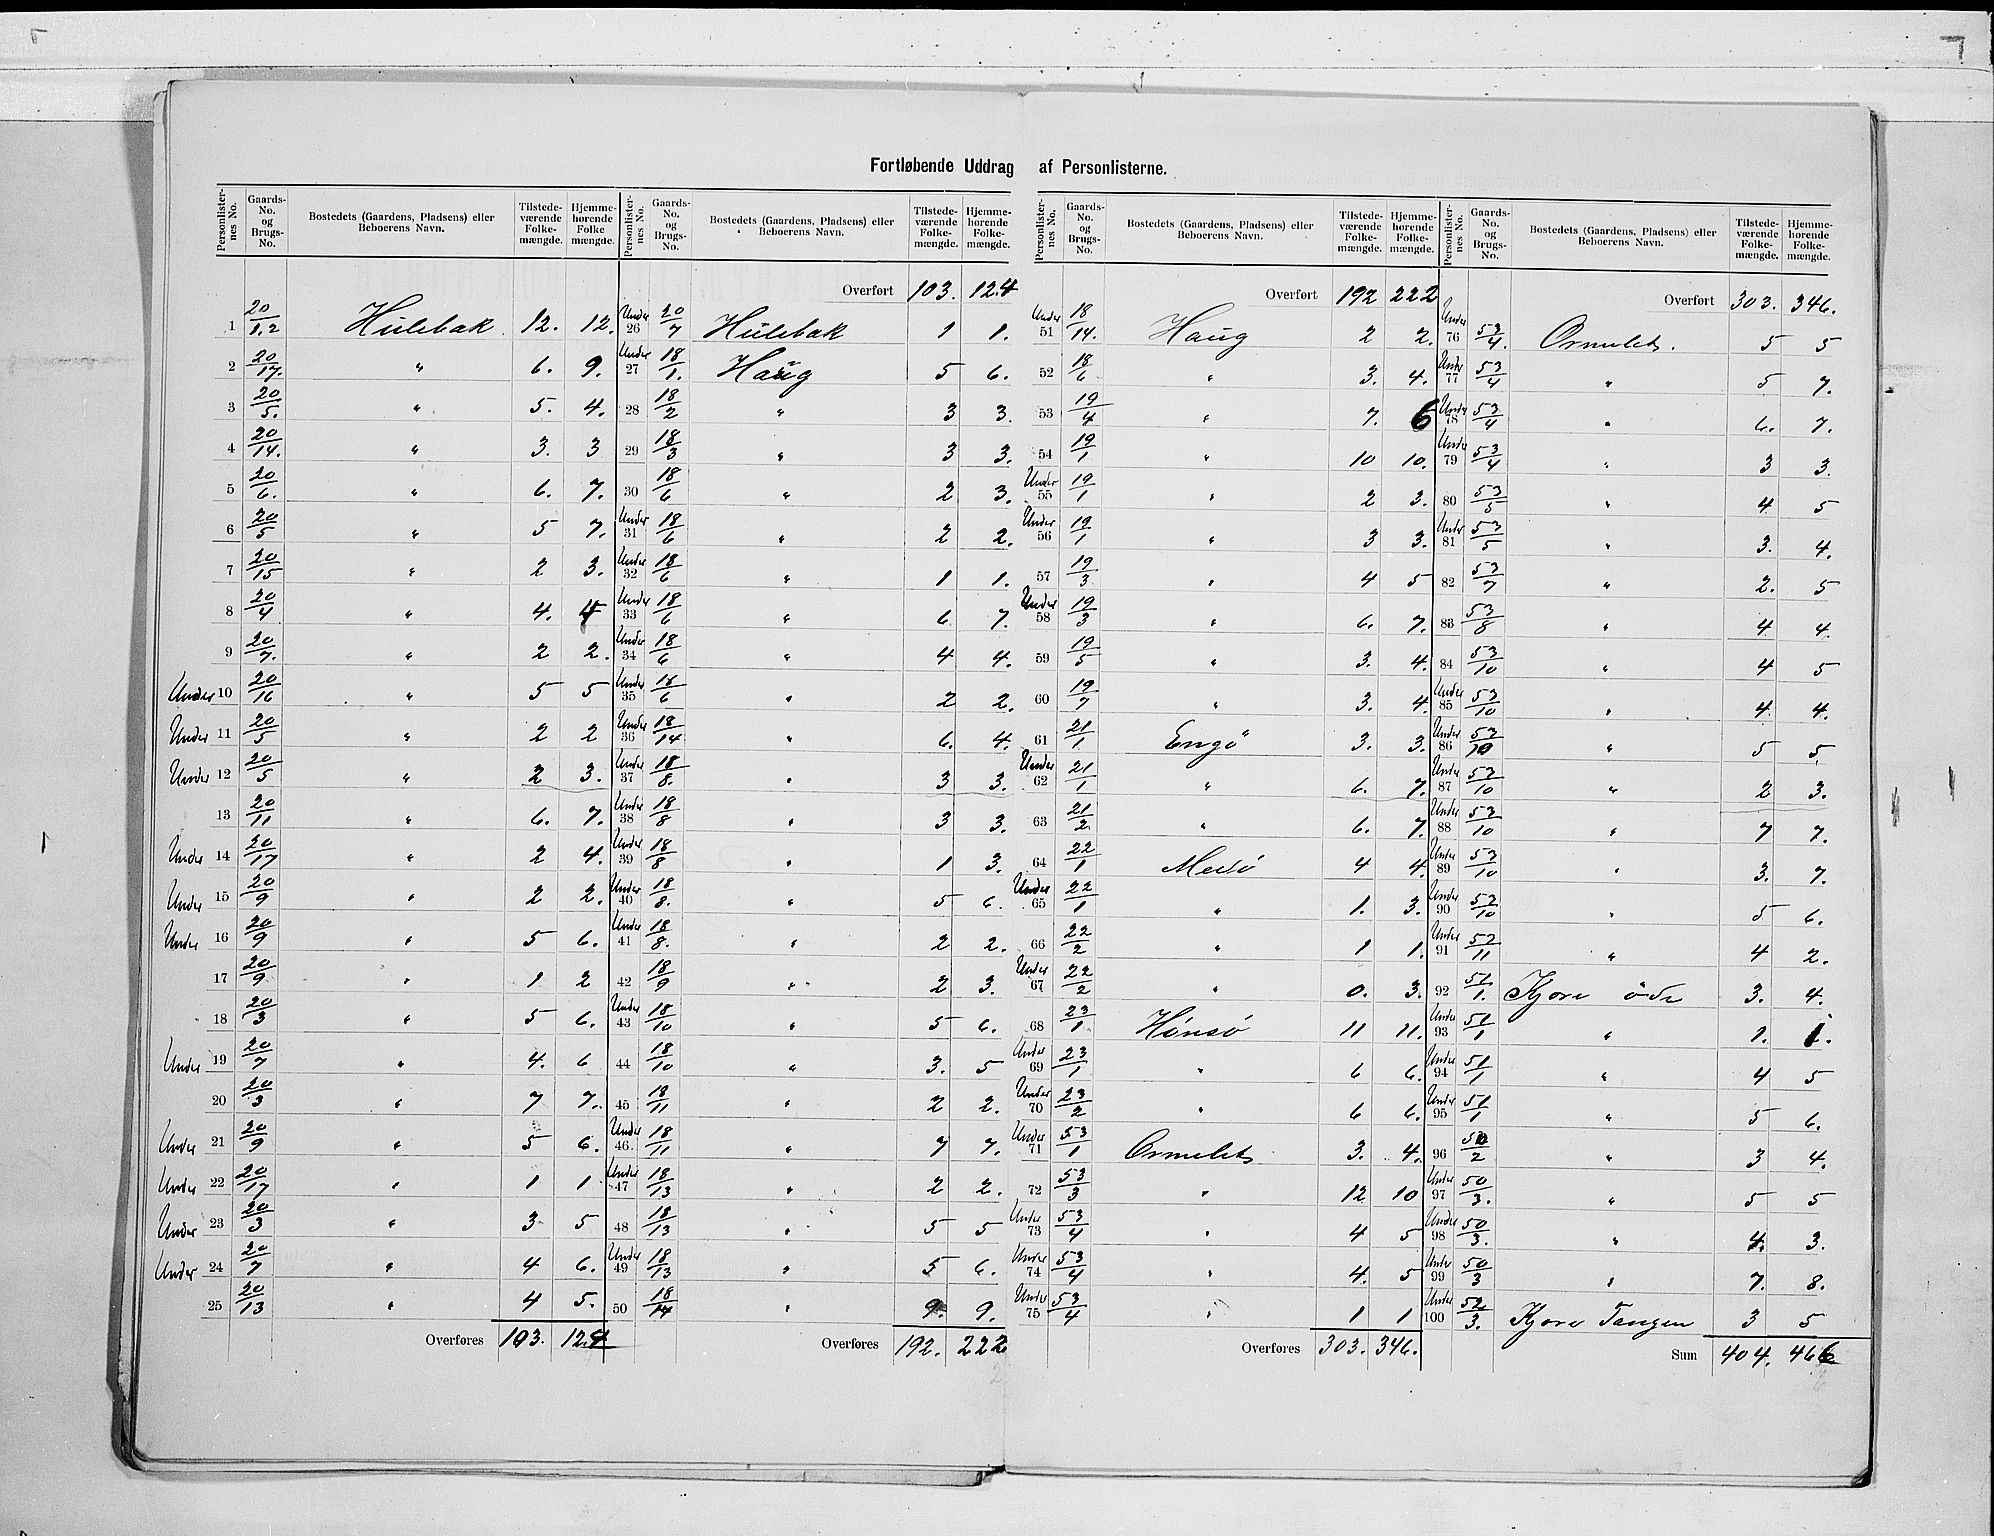 Fortløbende Uddrag af Personlisterne.
Personlister-nes No. Gaards-No. og Brugs-No. Bostedets (Gaardens, Pladsens) eller Beboerens Navn. Tilstede-værende Folke-mængde. Hjemme-hørende Folke mængde.
1 20/1,2 Hulebak 12. 12.
2 20/17. " 6. 9.
3 20/5. " 5. 4.
4 20/14. " 3. 3
5 20/6. " 6. 7.
6 20/5 " 5 7.
7 20/15 " 2 3.
8 20/4 " 4. 4
9 20/7. " 2 2.
Under 10 20/16 " 5 5
Under 11 20/5 " 2 2
Under 12 20/5 " 2 3.
13 20/11 " 6. 7.
Under 14 20/17 " 2 4.
Under 15 20/9 " 2 2.
Under 16 20/9 " 5 6.
17 20/9 " 1 2
18 20/3 " 5 6.
Under 19 20/7 " 4. 6
20 20/3 " 7 7.
Under 21 20/9 " 5 6.
Under 22 20/17 " 1 1
Under 23 20/3 " 3 5
Under 24 20/7 " 4 6.
25 20/13 " 4 5.
Overføres 103. 124
Personlister-nes No. Gaards-No. og Brugs-No. Bostedets (Gaardens, Pladsens) eller Beboerens Navn. Tilstede-værende Folke-mængde. Hjemme-hørende Folke-mængde.
Overført 103. 124
Under 26 20/7 Hulebak 1 1.
Under 27 18/1. Haug 5 6.
28 18/2 " 3 3.
29 18/3 " 3 3.
30 18/6 " 2 3.
Under 31 18/6 " 2 2.
Under 32 18/6 " 1 1.
Under 33 18/6 " 6 7.
Under 34 18/6 " 4 4.
Under 35 18/6 " 2 2.
Under 36 18/14 " 6. 4.
Under 37 18/8. " 3 3.
Under 38 18/8 " 3 3.
Under 39 18/8 " 1 3.
Under 40 18/8. " 5 6.
Under 41 18/8. " 2 2.
42 18/9 " 2 3.
Under 43 18/10 " 5 6.
44 18/10 " 3. 5
45 18/11 " 2 2.
Under 46. 18/11 " 7 7.
Under 47 18/13 " 2 2.
48 18/13 " 5 5
Under 49 18/13 " 5 6.
50 18/14 " 9. 9.
Overføres 192. 222
Personlister-nes No. Gaards-No. og Brugs-No. Bostedets (Gaardens, Pladsens) eller Beboerens Navn. Tilstede-værende Folke-mængde. Hjemme-hørende Folke-mængde.
Overført 192 222
Under 51 18/14. Haug 2 2.
52 18/6 " 3. 4.
53 19/4 " 7. 6
54 19/1 " 10 10.
Under 55 19/1 " 2 3.
Under 56 19/1 " 3 3.
57 19/3 " 4 5
Under 58 19/3 " 6. 7.
59 19/5 " 3. 4.
60 19/7 " 3. 4.
61 21/1 Engö 3. 3.
Under 62 21/1 " 6. 7.
63 21/2. " 6. 7.
64 22/1 Medö 4 4.
Under 65 22/1 " 1. 3.
66 22/2 " 1 1.
Under 67 22/2 " 0. 3.
68 23/1 Hönsö 11 11.
Under 69 23/1 " 6 6.
Under 70 23/2 " 6 6.
Under 71 53/1 Ormelet 3. 4.
72 53/3 " 12 10
Under 73 53/4 " 4 5
Under 74 53/4 " 4. 5
Under 75 53/4 " 1 1
Overføres 303. 346.
Personlister-nes No. Gaards-No. og Brugs-No. Bostedets (Gaardens, Pladsens) eller Beboerens Navn. Tilstede-værende Folke-mængde. Hjemme-hørende Folke-mængde.
Overført 303. 346.
Under 76 53/4. Ormelet. 5 5
Under 77 53/4 " 5 7.
Under 78 53/4 " 6. 7.
Under 79 53/4 " 3 3.
80 53/5 " 4 5
Under 81 53/5 " 3. 4.
82 53/7 " 2. 5
83 53/8 " 4 4.
84 53/10 " 4 5
Under 85 53/10 " 4 4.
Under 86 53/10 " 5 5.
Under 87 53/10 " 2 3.
Under 88 53/10 " 7 7.
Under 89 53/10 " 3. 7.
Under 90 53/10 " 5 6.
Under 91 53/11 " 4 2.
92 51/1. Kjøre öde 3. 4.
Under 93 51/1 " 1. 1.
Under 94 51/1 " 4 5
Under 95 51/1 " 5 6.
96 50/2 " 3 4.
Under 97 50/3. " 5 5
Under 98 50/3. " 4. 3.
Under 99 50/3 " 7. 8.
Under 100 52/3. Kjøre Tangen 3 5
Sum 404. 466